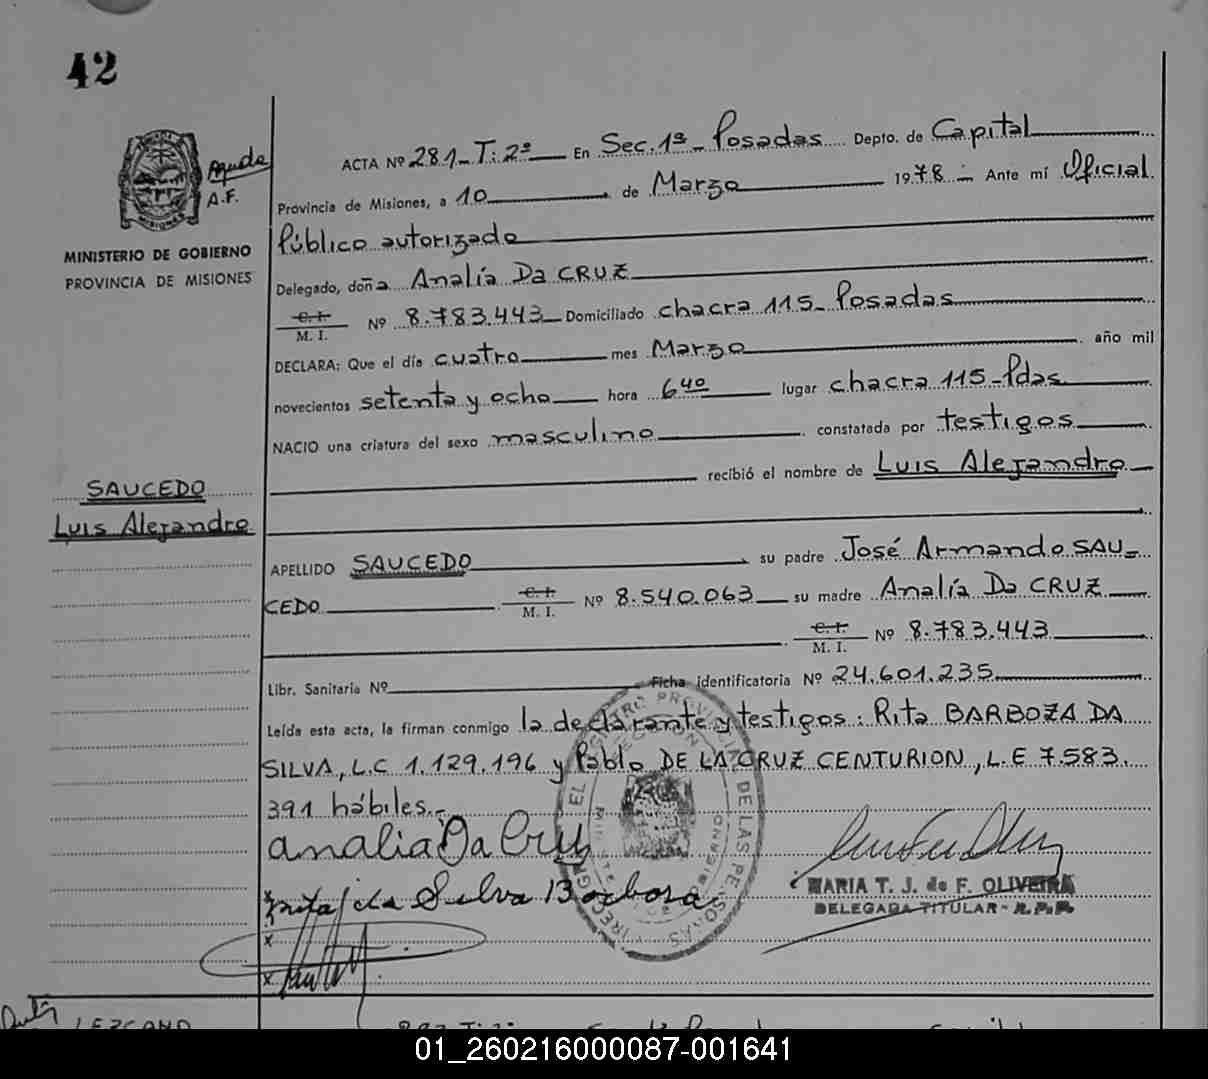 42
ACTA Nº 281_T: 2º En Sec. 1ª_ Posadas Depto. de Capital
A.F.
Provincia de Misiones, a 10 de Marzo 1978 Ante mí Oficial
MINISTERIO DE GOBIERNO
PROVINCIA DE MISIONES
Público autorizado
Delegado, doña Analía Da CRUZ
C. I.
M. I. Nº 8.783.443 Domiciliado chacra 115_ Posadas
DECLARA: Que el día cuatro mes Marzo año mil
novecientos setenta y ocho hora 6 40 lugar chacra 115-Pdas
NACIO una criatura del sexo masculino constatada por testigos
recibió el nombre de Luis Alejandro
SAUCEDO
Luis Alejandro
APELLIDO SAUCEDO su padre José Armando SAU=
CEDO C. I. M. I. Nº 8.540.063 su madre Analía Da CRUZ
C. I. M. I. Nº 8.783.443
Libr. Sanitaria Nº Ficha identificatoria Nº 24.601.235
Leída esta acta, la firman conmigo la declarante y testigos: Rita BARBOZA DA
SILVA, L.C 1.129.196 y Pablo DE LA CRUZ CENTURION, L.E 7.583.
391 hábiles._
analia Da Cruz
Rita da Silva Barbosa
MARIA T. J. de F. OLIVEIRA
DELEGADA TITULAR - R.P.P.
LEZCANO
01_260216000087-001641